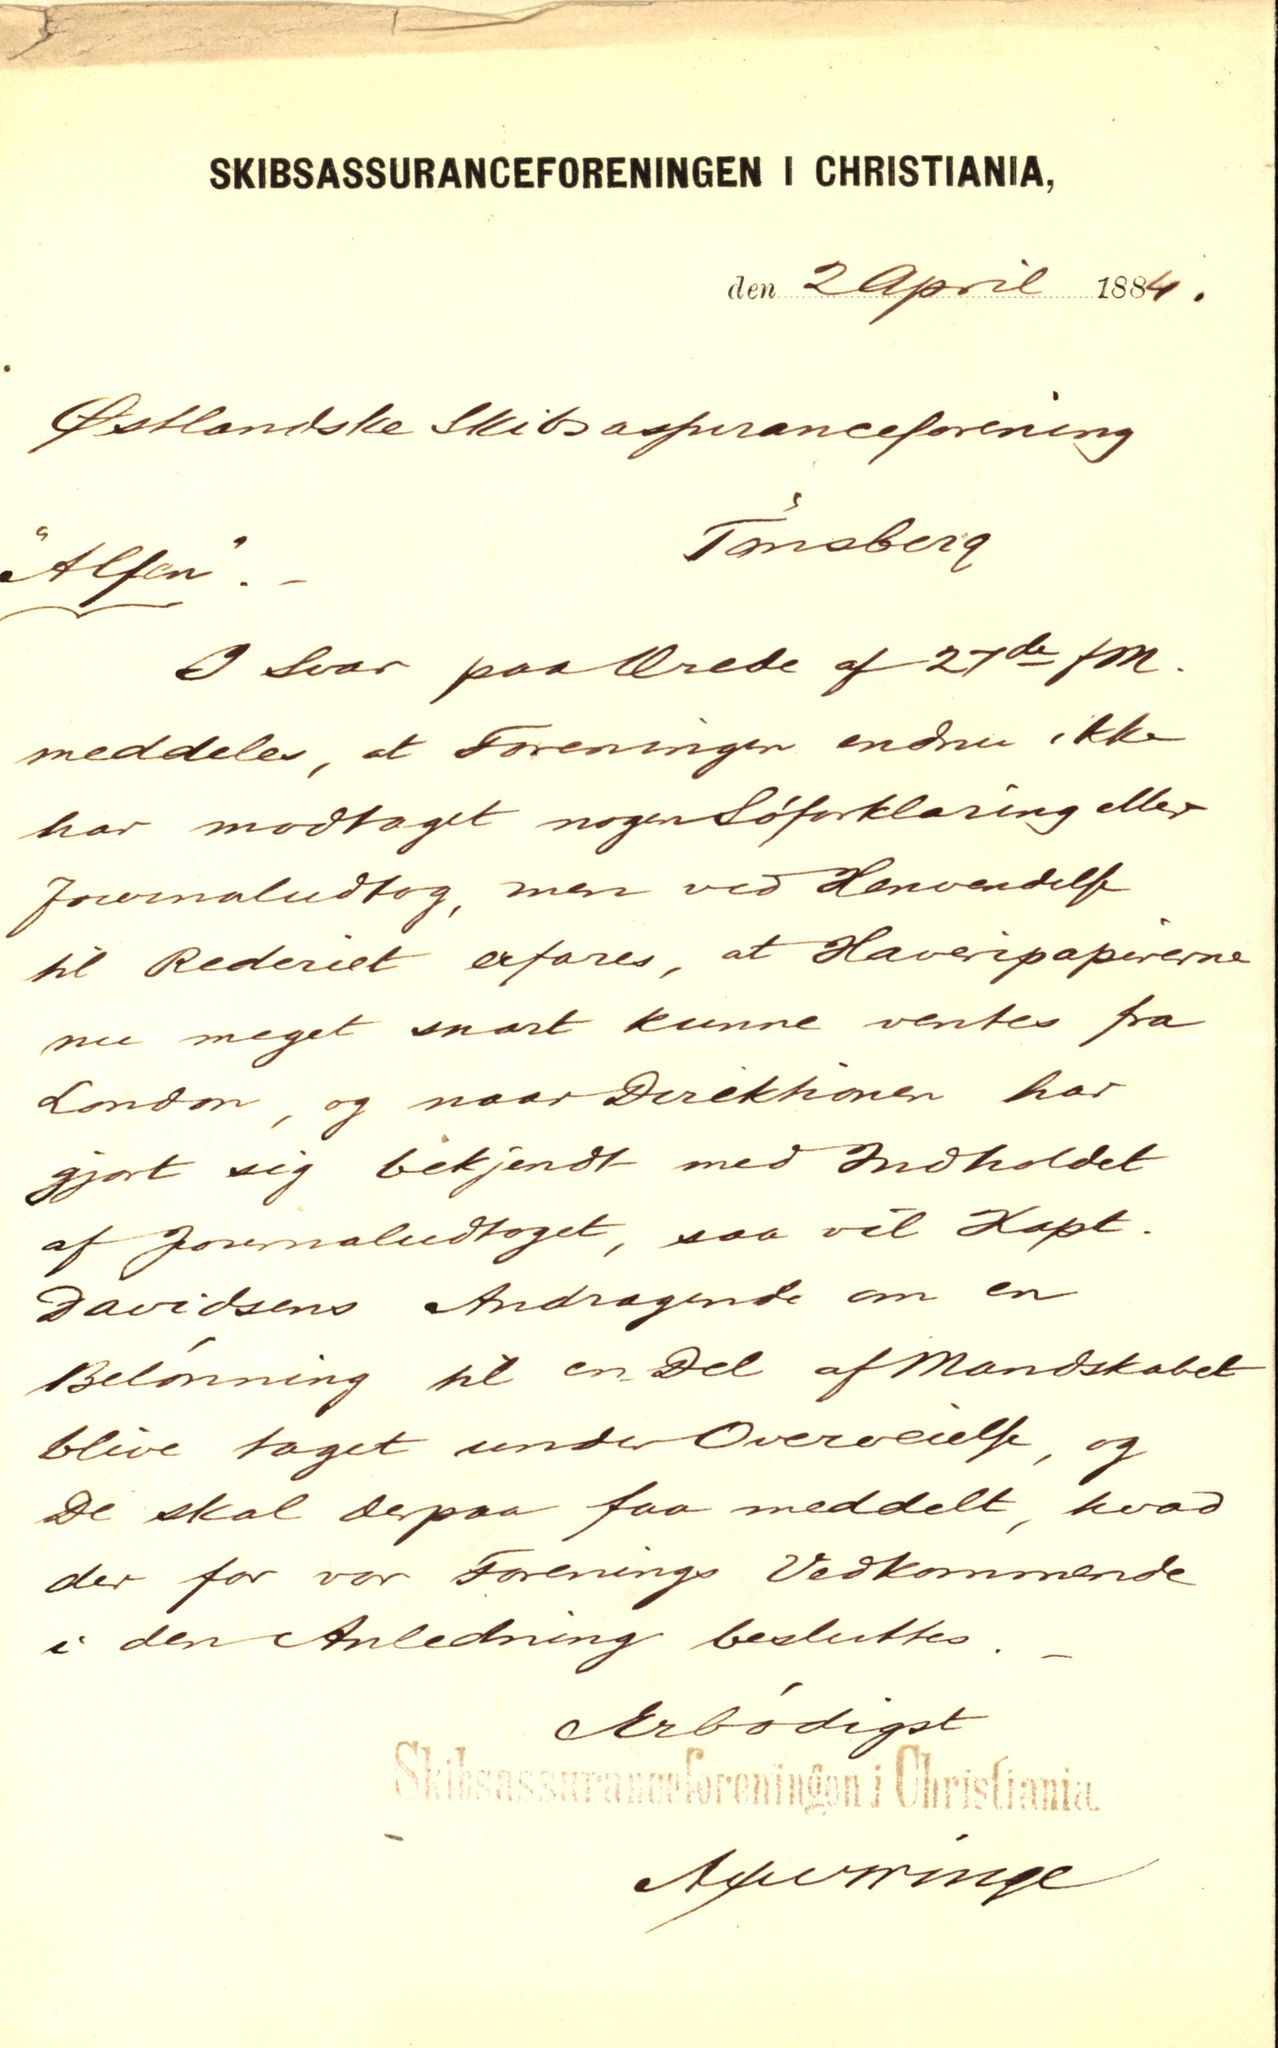 SKIBSASSURANCEFORENINGEN I CHRISTIANIA,
den 2 April 1884.
Østlandske Skibsassuranceforening
Tönsberg
"Alfen". -
I Svar paa Ærede af 27de f M.
meddeles, at Foreningen endnu ikke
har modtaget nogen Söforklaring eller
Journaludtog, men ved Henvendelse
til Rederiet erfares, at Haveripapirerne
nu meget snart kunne ventes fra
London, og naar Direktionen har
gjort sig bekjendt med Indholdet
af Journaludtoget, saa vil Kapt.
Davidsens Andragende om en
Belönning til en Del af Mandskabet
blive taget under Overveielse, og
De skal derpaa faa meddelt, hvad
der for vor Forenings Vedkommende
i den Anledning besluttes. -
Ærbödigst
Skibsassuranceforeningen i Christiania